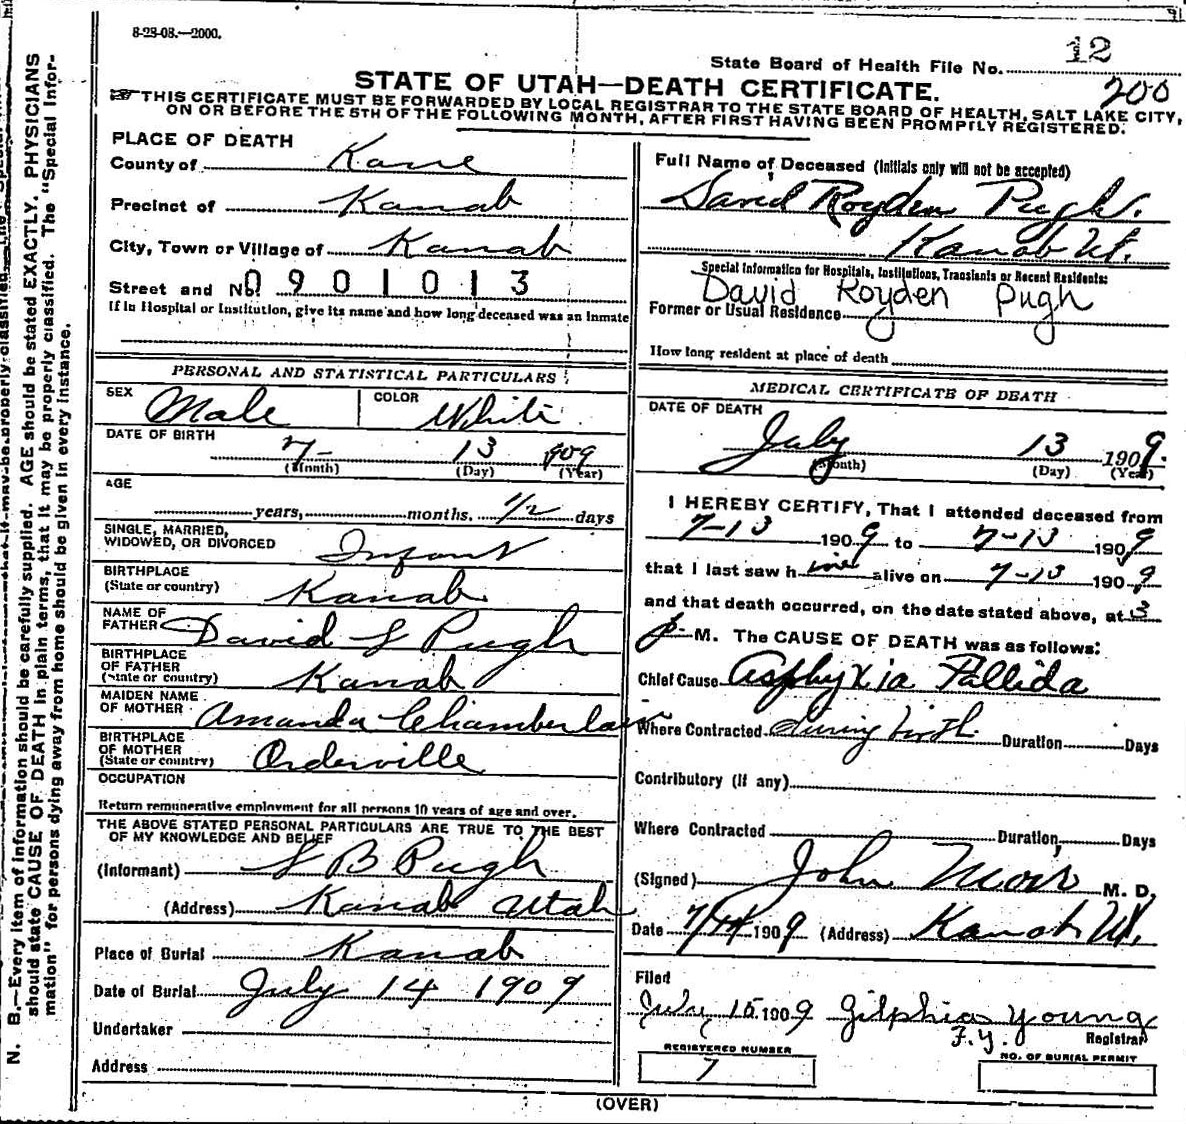 8-23-08.—2000.
State Board of Health File No. 12
200
STATE OF UTAH—DEATH CERTIFICATE.
THIS CERTIFICATE MUST BE FORWARDED BY LOCAL REGISTRAR TO THE STATE BOARD OF HEALTH, SALT LAKE CITY,
ON OR BEFORE THE 5TH OF THE FOLLOWING MONTH, AFTER FIRST HAVING BEEN PROMPTLY REGISTERED.
PLACE OF DEATH
County of Kane
Precinct of Kanab
City, Town or Village of Kanab
Street and No. 0901013
If in Hospital or Institution, give its name and how long deceased was an inmate
PERSONAL AND STATISTICAL PARTICULARS
SEX Male COLOR White
DATE OF BIRTH 7- 13 1909
(Month) (Day) (Year)
AGE
years, months. 1/2 days
SINGLE, MARRIED,
WIDOWED, OR DIVORCED Infant
BIRTHPLACE
(State or country) Kanab
NAME OF
FATHER David S Pugh
BIRTHPLACE
OF FATHER
(State or country) Kanab
MAIDEN NAME
OF MOTHER Amanda Chamberlain
BIRTHPLACE
OF MOTHER
(State or country) Orderville
OCCUPATION
Return remunerative employment for all persons 10 years of age and over.
THE ABOVE STATED PERSONAL PARTICULARS ARE TRUE TO THE BEST
OF MY KNOWLEDGE AND BELIEF
(Informant) S B Pugh
(Address) Kanab Utah
Place of Burial Kanab
Date of Burial July 14 1909
Undertaker
Address
Full Name of Deceased (Initials only will not be accepted)
David Royden Pugh.
Kanab Ut.
Special Information for Hospitals, Institutions, Transients or Recent Residents:
David Royden Pugh
Former or Usual Residence
How long resident at place of death
MEDICAL CERTIFICATE OF DEATH
DATE OF DEATH
July 13 1909.
(Month) (Day) (Year)
I HEREBY CERTIFY, That I attended deceased from
7-13 1909 to 7-13 1909
that I last saw h im alive on 7-13 1909
and that death occurred, on the date stated above, at 3
p. M. The CAUSE OF DEATH was as follows:
Chief Cause Asphyxia Pallida
Where Contracted during birth Duration Days
Contributory (if any)
Where Contracted Duration, Days
(Signed) John M. D.
Date 1909 (Address) Kanab Ut.
Filed
July 15 1909 Gilphia Young
F.Y. Registrar
REGISTERED NUMBER
7
NO. OF BURIAL PERMIT
(OVER)
N. B.—Every item of information should be carefully supplied. AGE should be stated EXACTLY. PHYSICIANS
should state CAUSE OF DEATH in plain terms, that it may be properly classified. The "Special Infor-
mation" for persons dying away from home should be given in every instance.